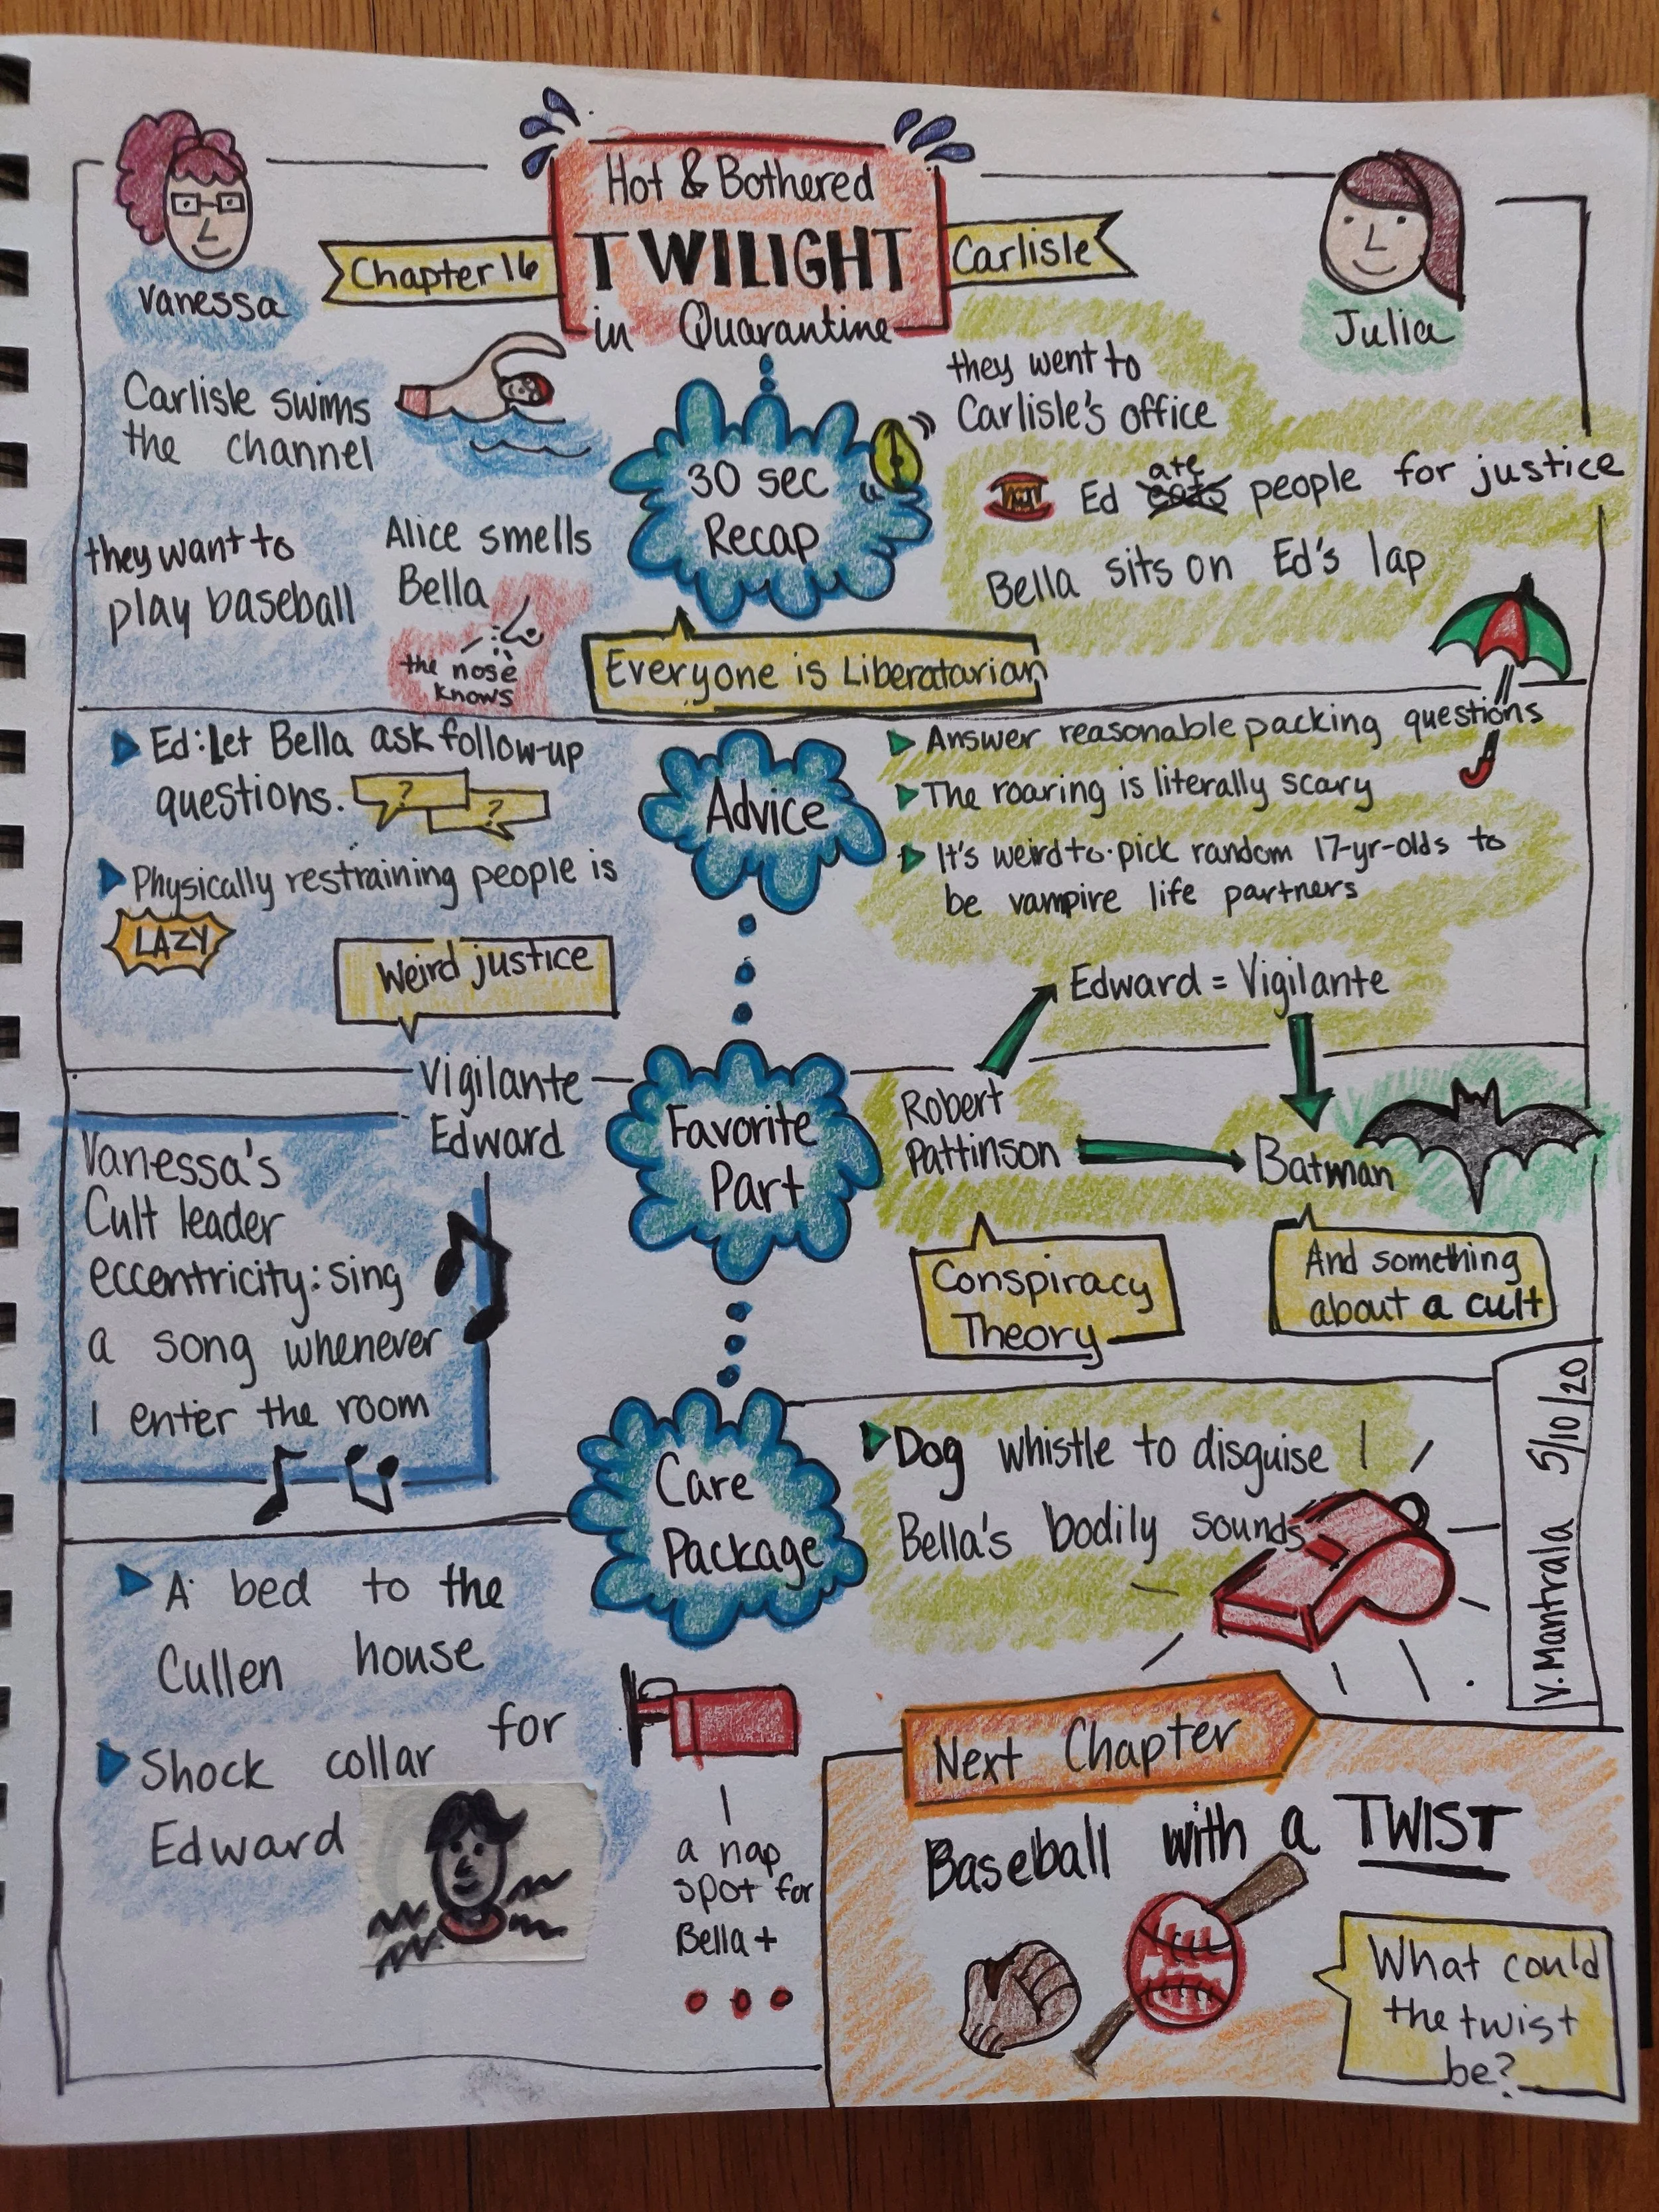 Hot & Bothered
TWILIGHT
in Quarantine
Chapter 16
Carlisle
Vanessa
Julia
30 sec
Recap
Carlisle swims
the channel
they want to
play baseball
Alice smells
Bella
the nose
knows
they went to
Carlisle's office
Ed eats ate people for justice
Bella sits on Ed's lap
Everyone is Liberatarian
Advice
Ed: Let Bella ask follow-up
questions.
? ?
Physically restraining people is
LAZY
Answer reasonable packing questions
The roaring is literally scary
It's weird to pick random 17-yr-olds to
be vampire life partners
Favorite
Part
Weird justice
Vigilante
Edward
Vanessa's
Cult leader
eccentricity: sing
a song whenever
I enter the room
Edward = Vigilante
Robert
Pattinson
Batman
Conspiracy
Theory
And something
about a cult
Care
Package
A bed to the
Cullen house
Shock collar for
Edward
a nap
spot for
Bella +
Dog whistle to disguise
Bella's bodily sounds
V. Mantrala 5/10/20
Next Chapter
Baseball with a TWIST
What could
the twist
be?